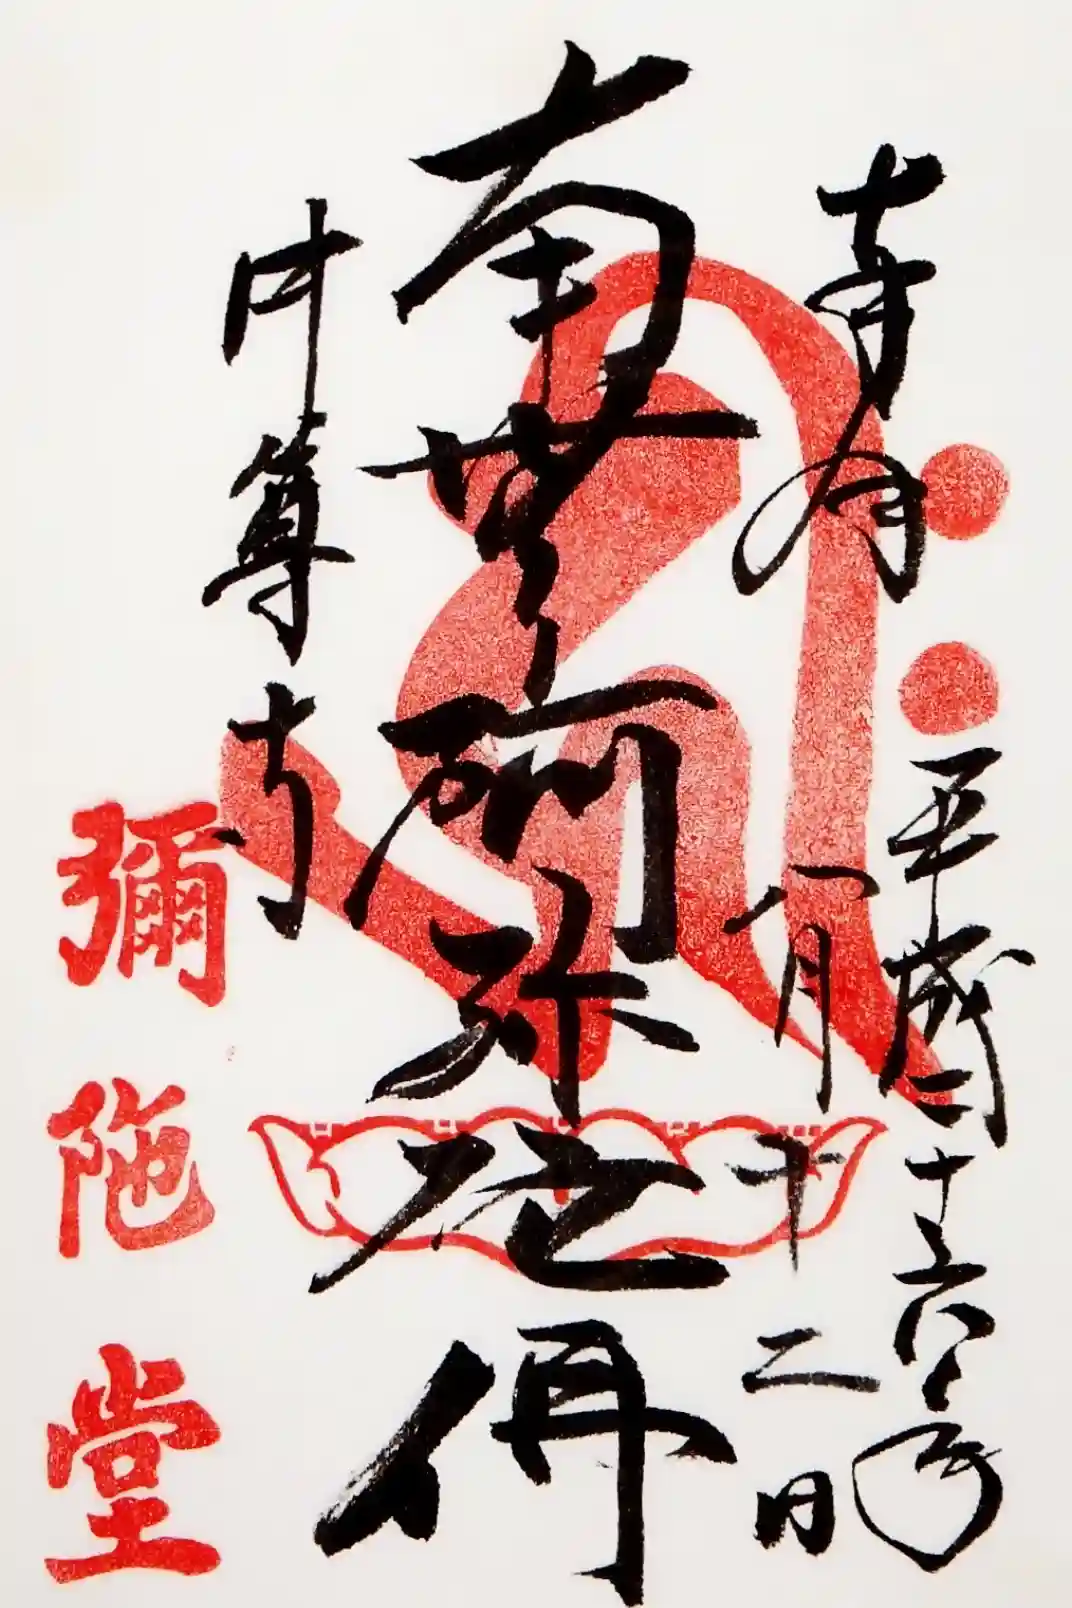 平成二十六年
八月十二日
南無阿弥陀佛
中尊寺
彌陀堂